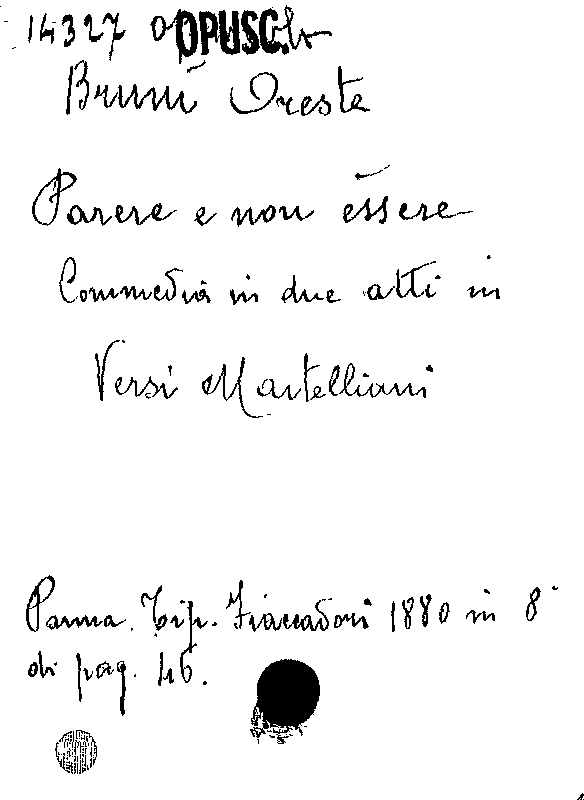 14327 OPUSC.
Bruni Oreste
Parere e non essere
Commedia in due atti in
Versi Martelliani
Parma. Tip. Fiaccadori 1880 in 8°
di pag. 46.